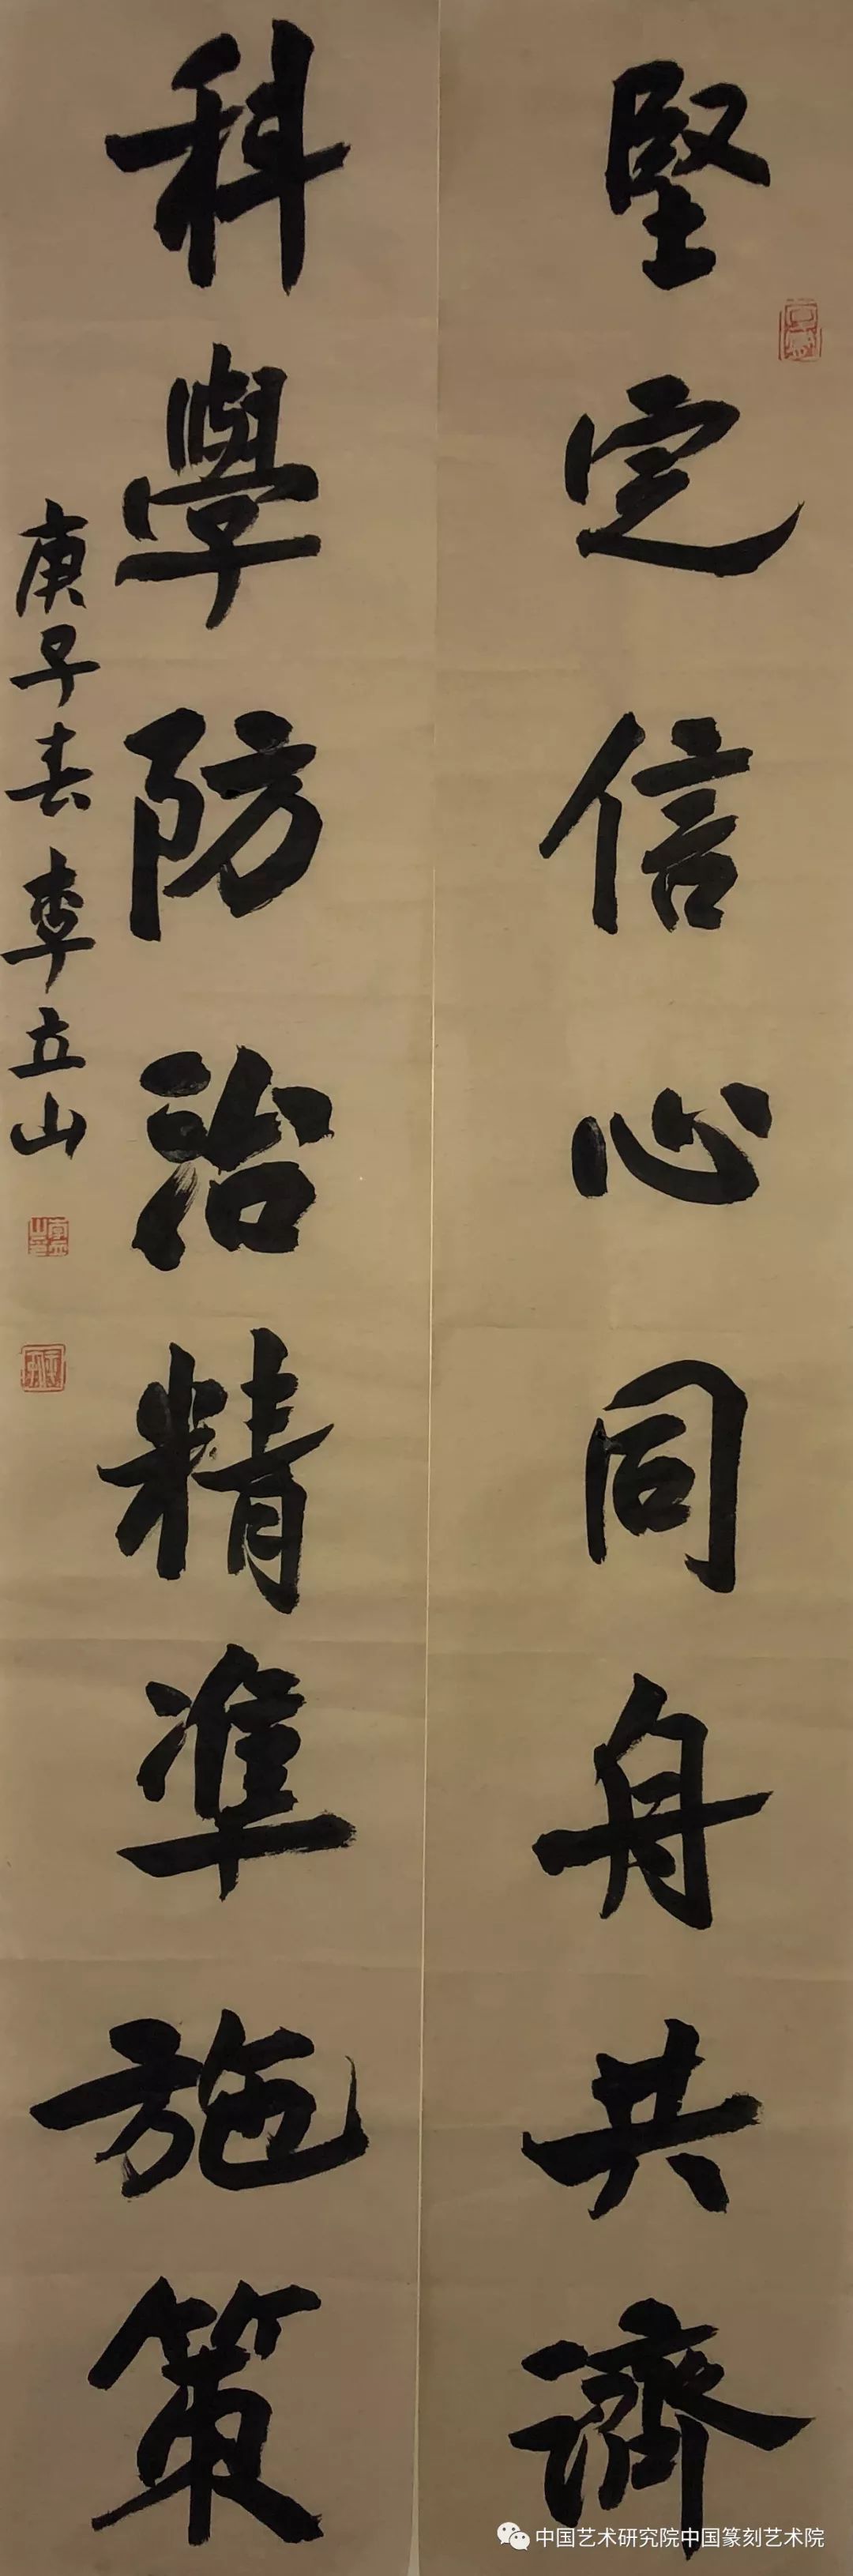 堅定信心同舟共濟
科學防治精準施策
庚子春 李立山
中国艺术研究院中国篆刻艺术院